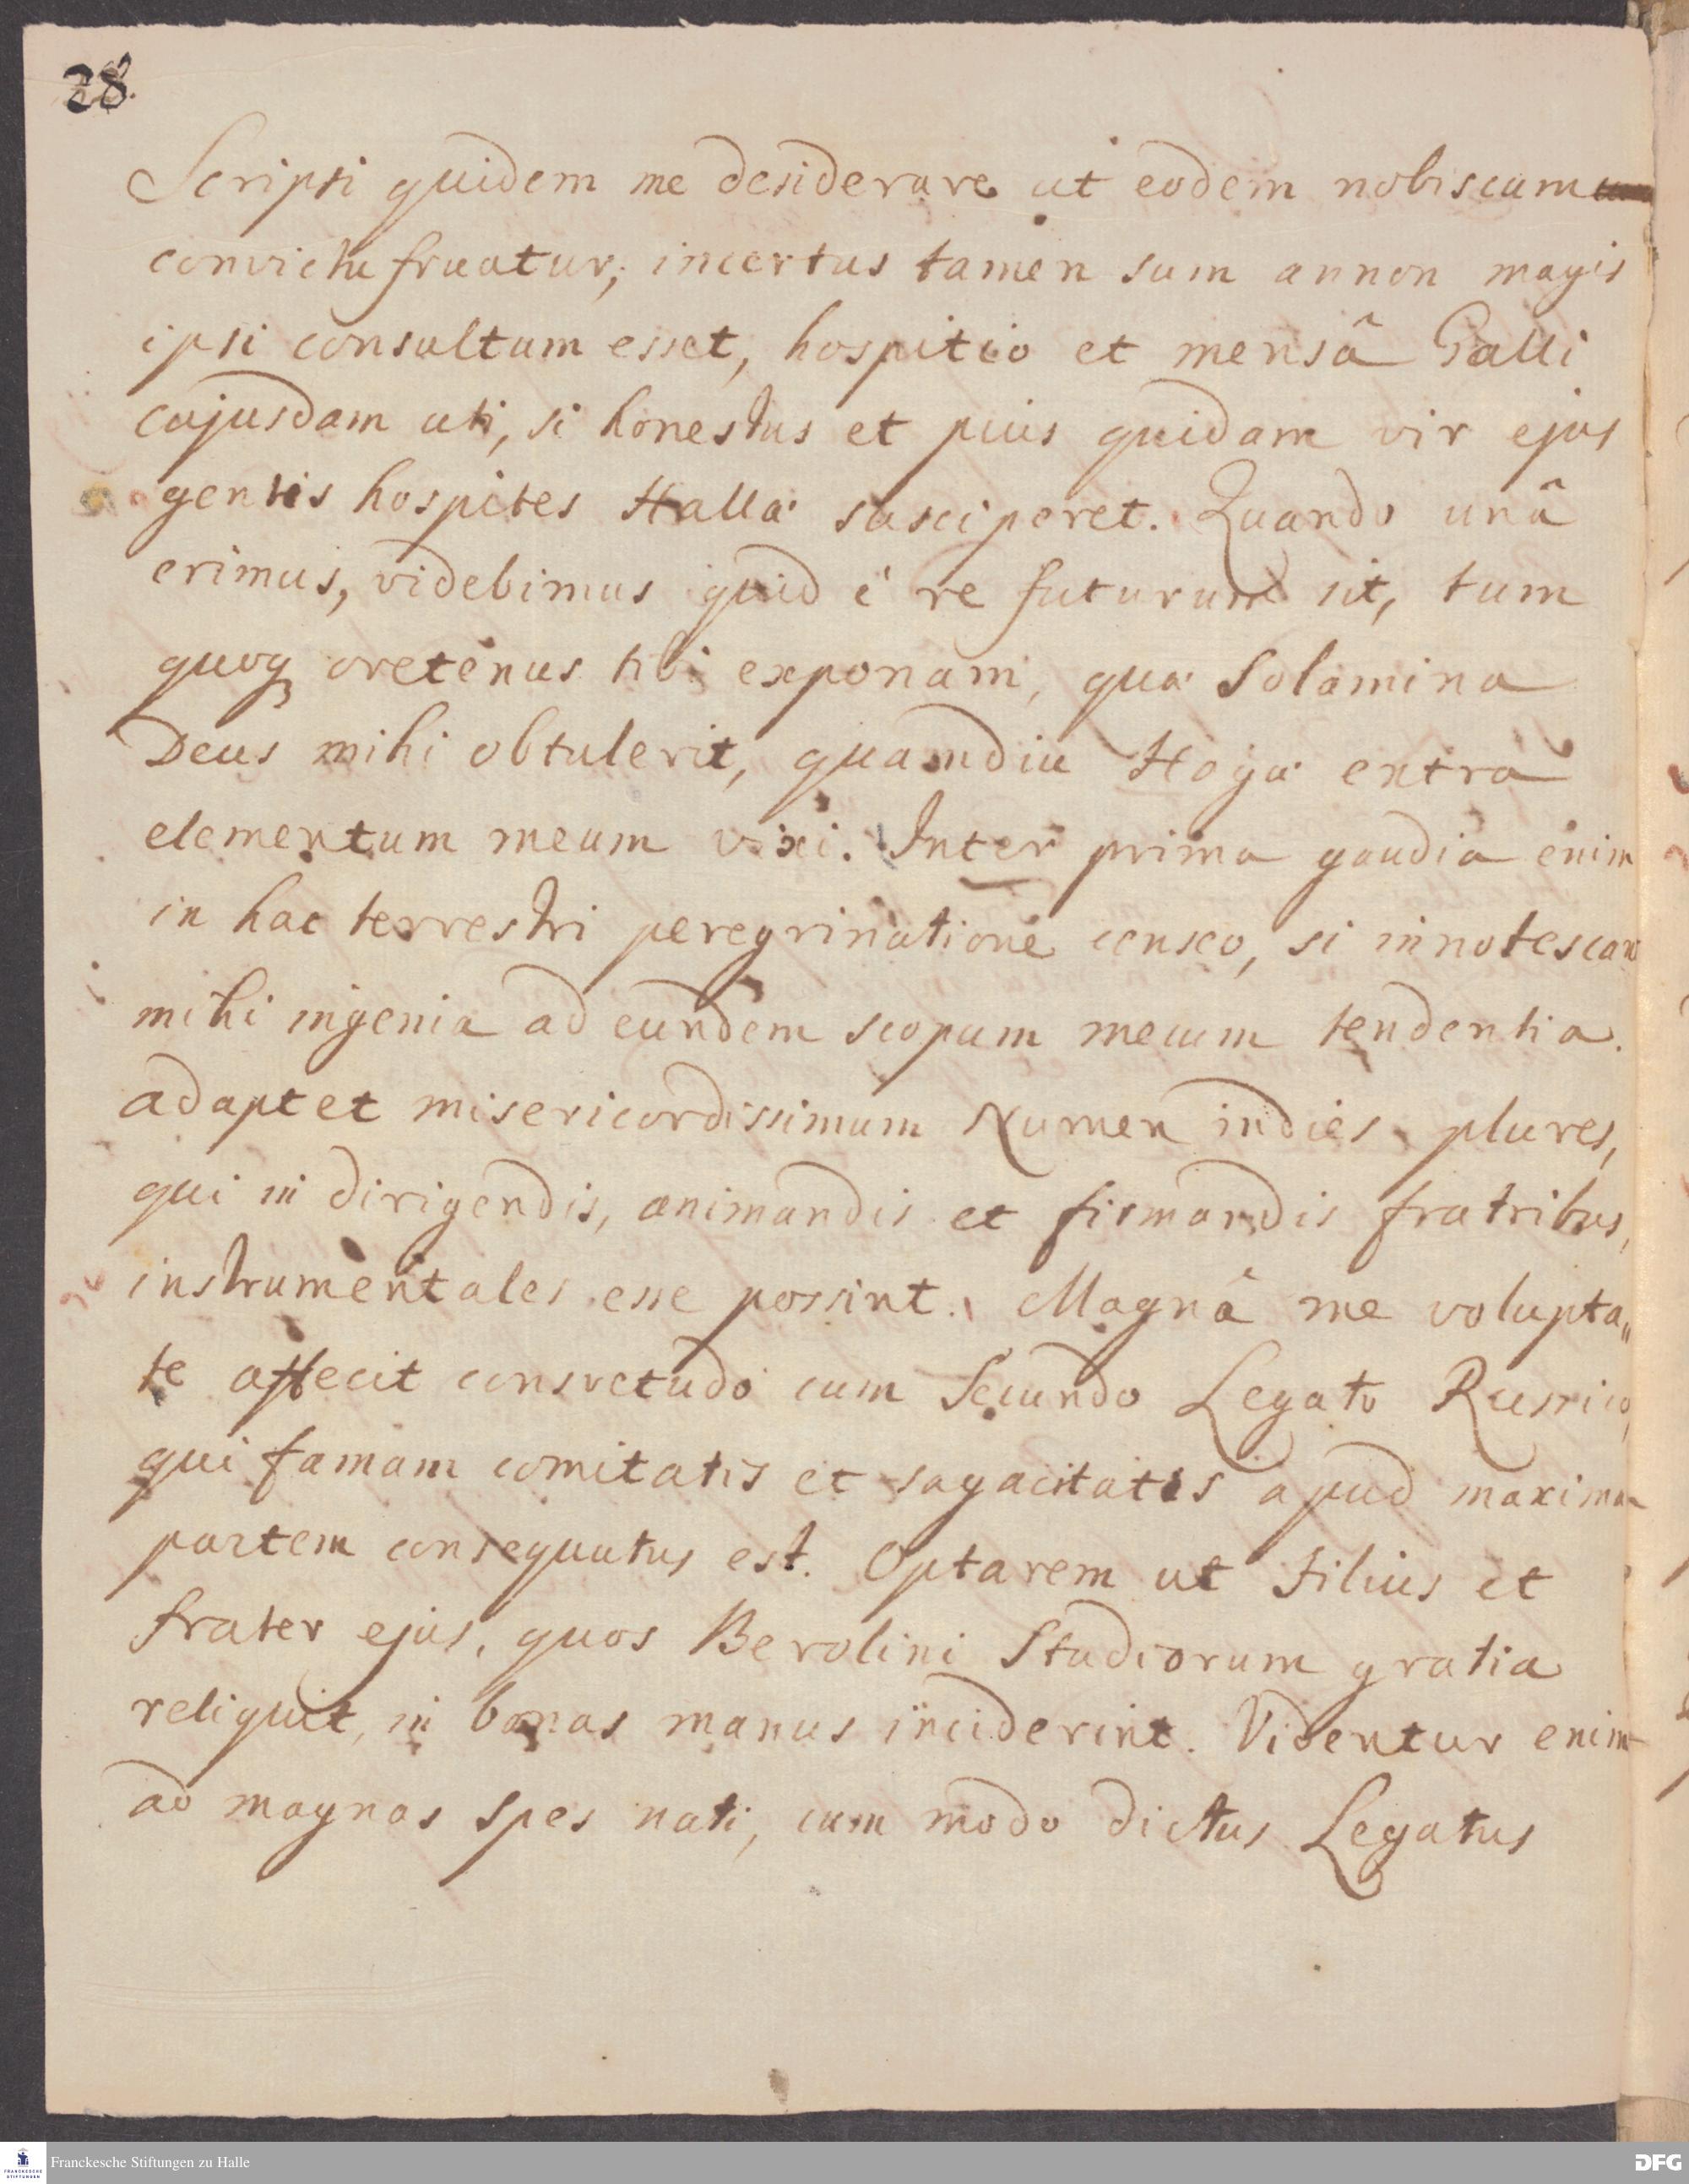 28.
Scripsi quidem me desiderare ut eodem nobiscum
convictu fruatur, incertus tamen sum annon magis
ipsi consultum esset, hospitio et mensâ Galli
cujusdam uti, si honestus et pius quidam vir ejus
gentis hospites Halla susciperet. Quando unâ
erimus, videbimus quid è re futurum sit, tum
quoq oretenus tibi exponam, qua Solamina
Deus mihi obtulerit, quamdiu Haga extra
elementum meum vixi. Inter prima gaudia enim
in hac terrestri peregrinatione censeo, si innotescan
mihi ingenia ad eundem scopum mecum tendentia.
adaptet misericordissimum Numen indies plures,
qui in dirigendis, animandis et firmandis fratribus,
instrumentales esse possint. Magnâ me volupta„
te affecit consvetudo cum Secundo Legato Russico,
qui famam comitatis et sagacitatis apud maximam
partem consequutus est. Optarem ut filius et
frater ejus, quos Berolini Studiorum gratia
reliquit, in bonas manus inciderint. Videntur enim
ad magnas spes nati, cum modo dictus Legatus
Franckesche Stiftungen zu Halle
DFG